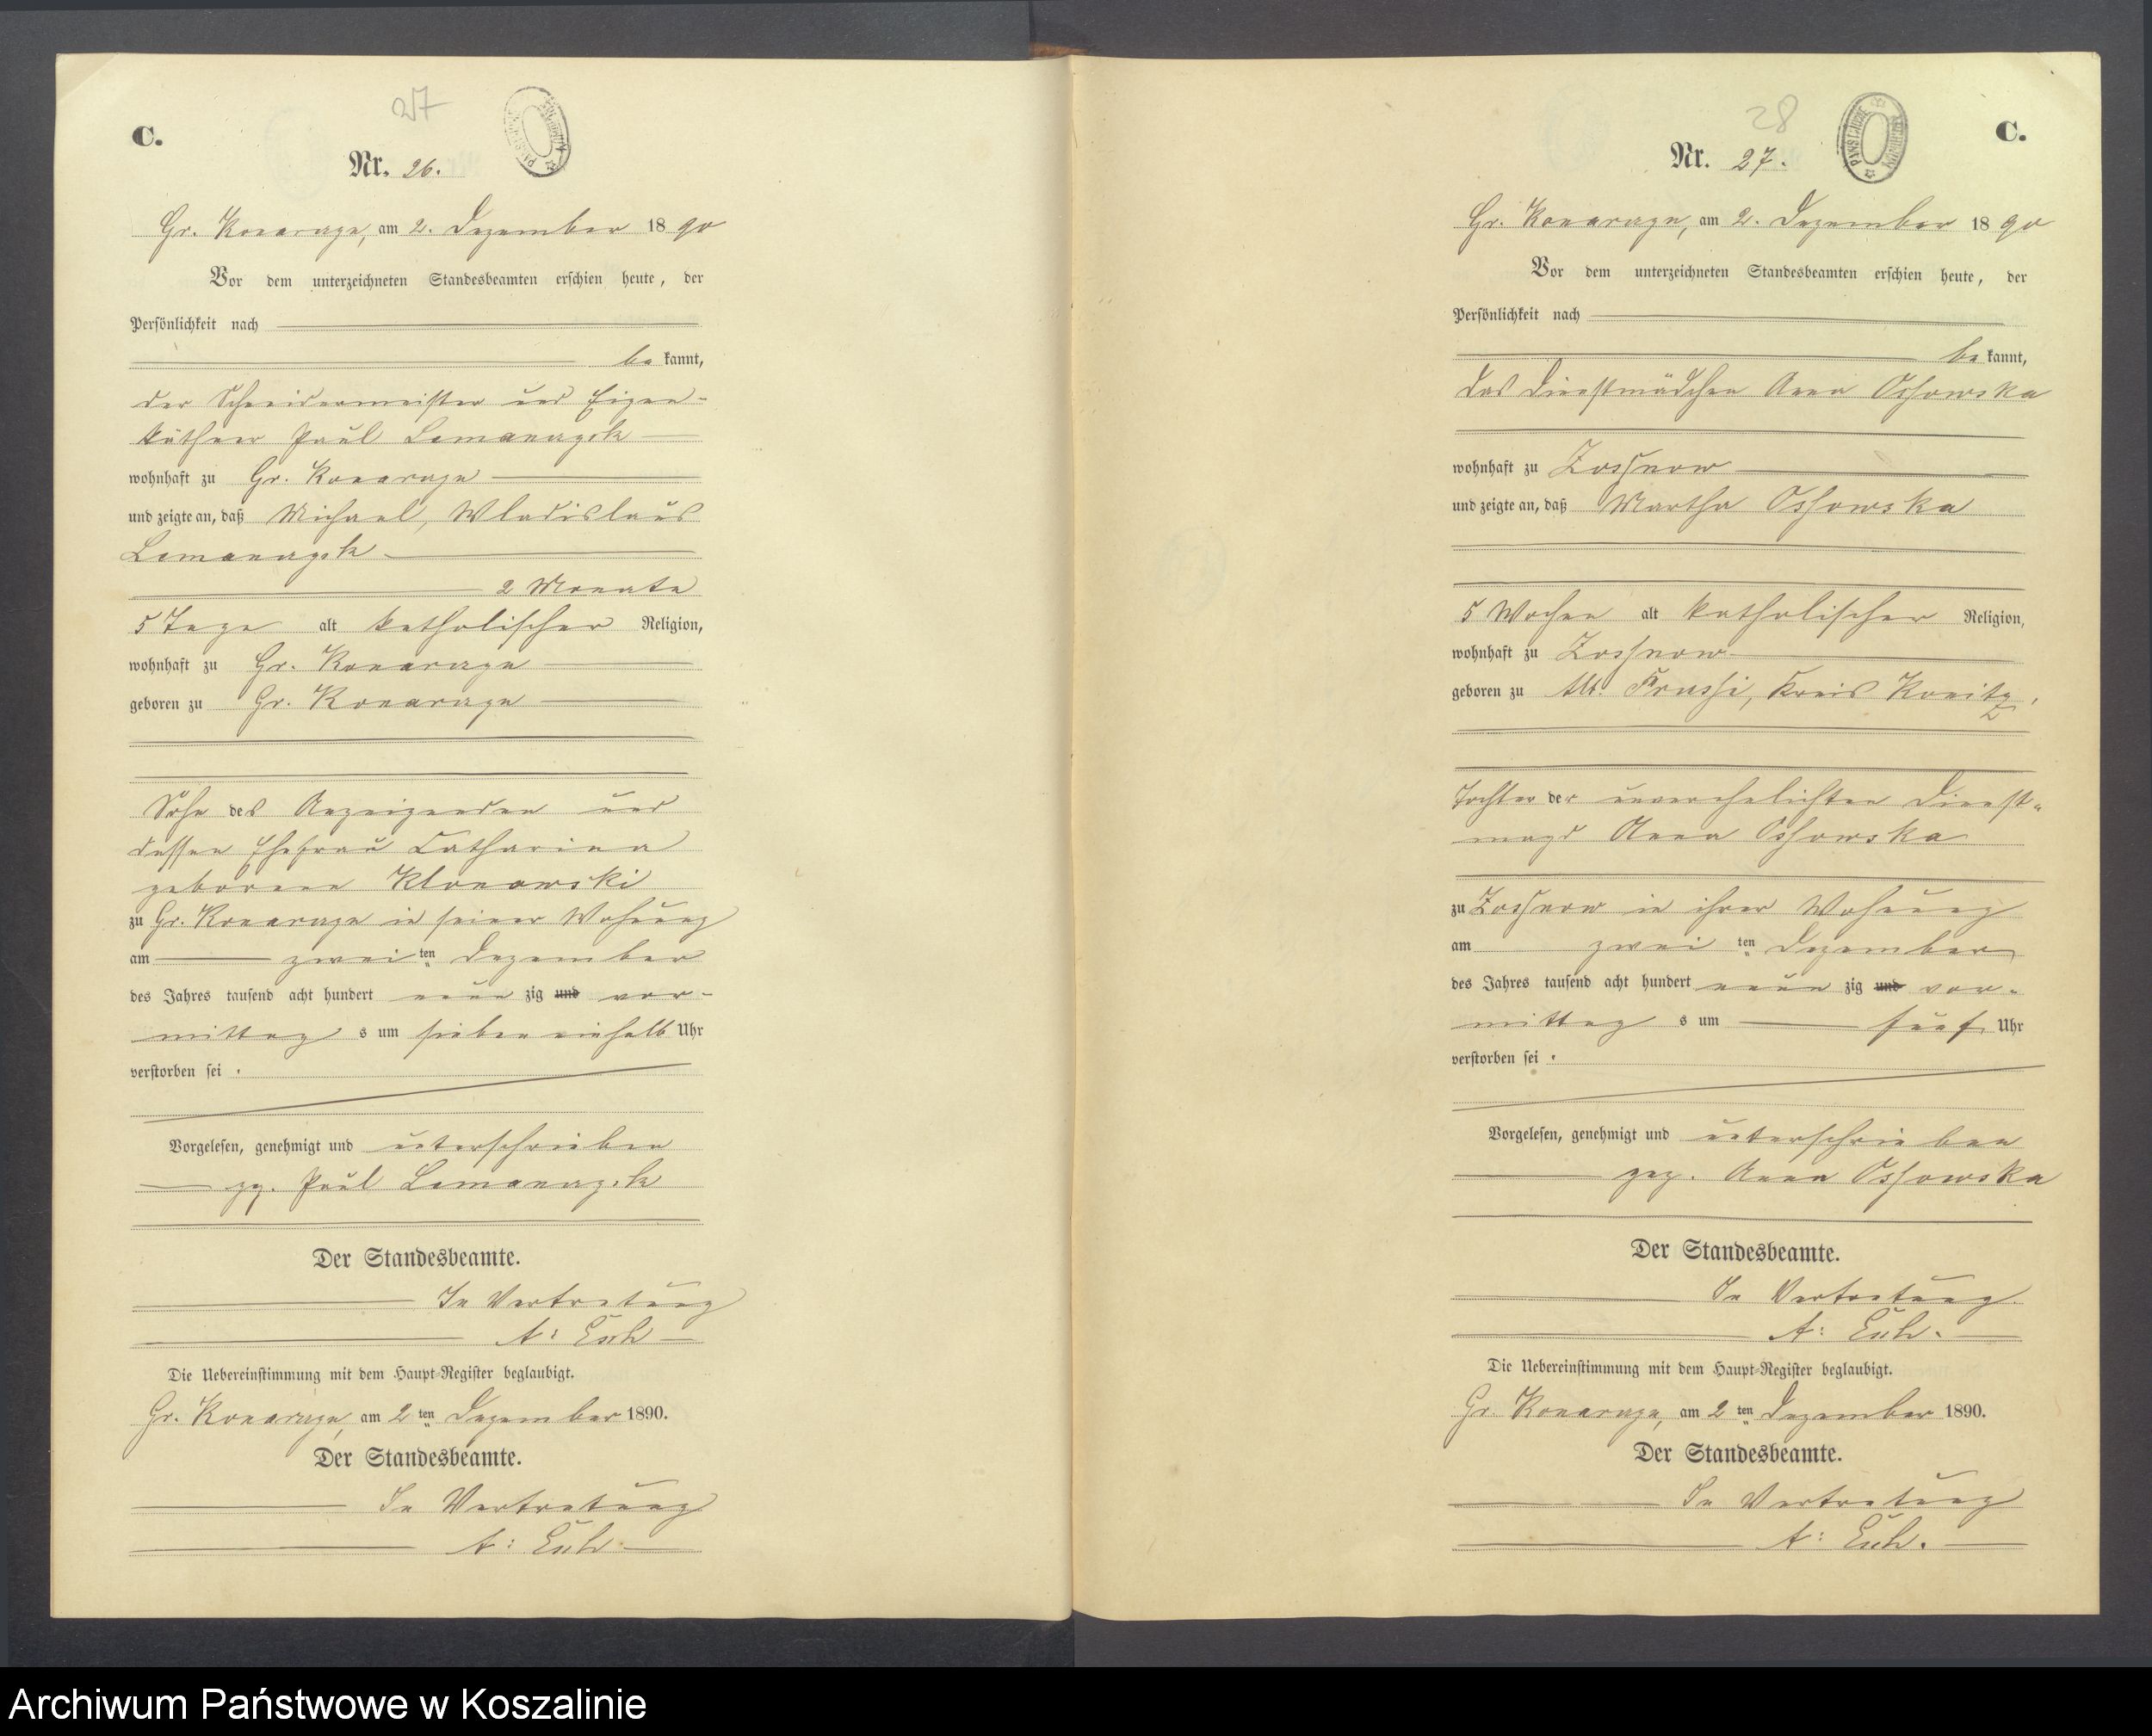 27
C.
Nr. 26.
Gr. Konarzyn, am 2. Dezember 1890
Vor dem unterzeichneten Standesbeamten erschien heute, der
Persönlichkeit nach
be kannt,
der Schneidermeister und Eigen-
käthner Paul Lemanczyk
wohnhaft zu Gr. Konarzyn
und zeigte an, daß Michael, Wladislaus
Lemanczyk
2 Monate
5 Tage alt katholischer Religion,
wohnhaft zu Gr. Konarzyn
geboren zu Gr. Konarzyn
Sohn des Anzeigenden und
dessen Ehefrau Catharina
geborene Klonowski
zu Gr. Konarzyn in seiner Wohnung
am zwei ten Dezember
des Jahres tausend acht hundert neun zig und vor-
mittag s um sieben einhalb Uhr
verstorben sei .
Vorgelesen, genehmigt und unterschrieben
gez. Paul Lemanczyk
Der Standesbeamte.
In Vertretung
A:
Die Uebereinstimmung mit dem Haupt-Register beglaubigt.
Gr. Konarzyn, am 2 ten Dezember 1890.
Der Standesbeamte.
In Vertretung
A:
28
C.
Nr. 27.
Gr. Konarzyn, am 2. Dezember 1890
Vor dem unterzeichneten Standesbeamten erschien heute, der
Persönlichkeit nach
be kannt,
das Dienstmädchen Anna Ossowska
wohnhaft zu Zossnow
und zeigte an, daß Martha Ossowska
5 Wochen alt katholischer Religion,
wohnhaft zu Zossnow
geboren zu Alt. Prussi, Kreis Konitz,
Tochter der unverehelichten Dienst-
magd Anna Ossowska
zu Zossnow in ihrer Wohnung
am zwei ten Dezember
des Jahres tausend acht hundert neun zig und vor-
mittag s um fünf Uhr
verstorben sei .
Vorgelesen, genehmigt und unterschrieben
gez. Anna Ossowska
Der Standesbeamte.
In Vertretung.
A:
Die Uebereinstimmung mit dem Haupt-Register beglaubigt.
Gr. Konarzyn, am 2 ten Dezember 1890.
Der Standesbeamte.
In Vertretung
A:
Archiwum Państwowe w Koszalinie